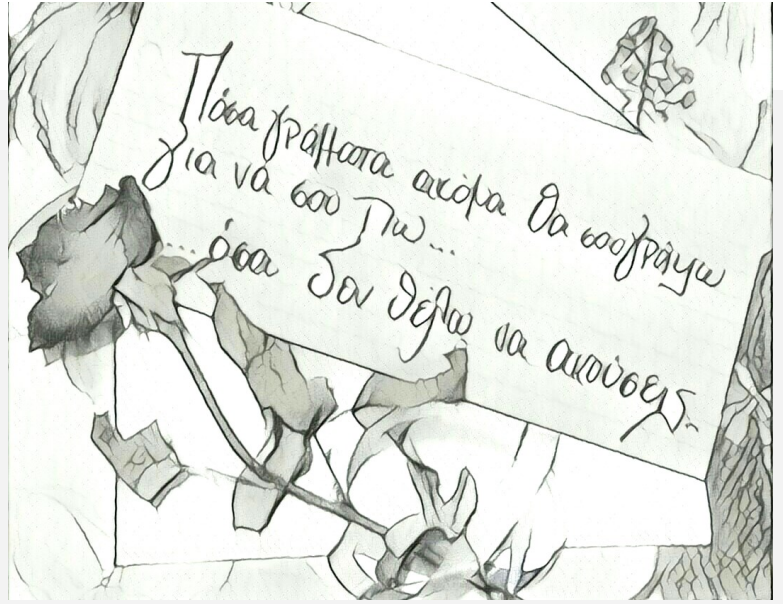 Πόσα γράμματα ακόμα θα σου γράψω
για να σου πω...
...όσα δεν θέλω να ακούσεις.